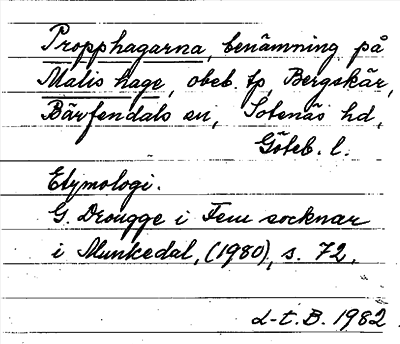 Propphagarna, benämning på
Malis hage, obeb. tp, Bergskär,
Bärfendals sn, Sotenäs hd,
Göteb. l.
Etymologi.
G. Drougge i Fem socknar
i Munkedal, (1980), s. 72.
L-t. B. 1982